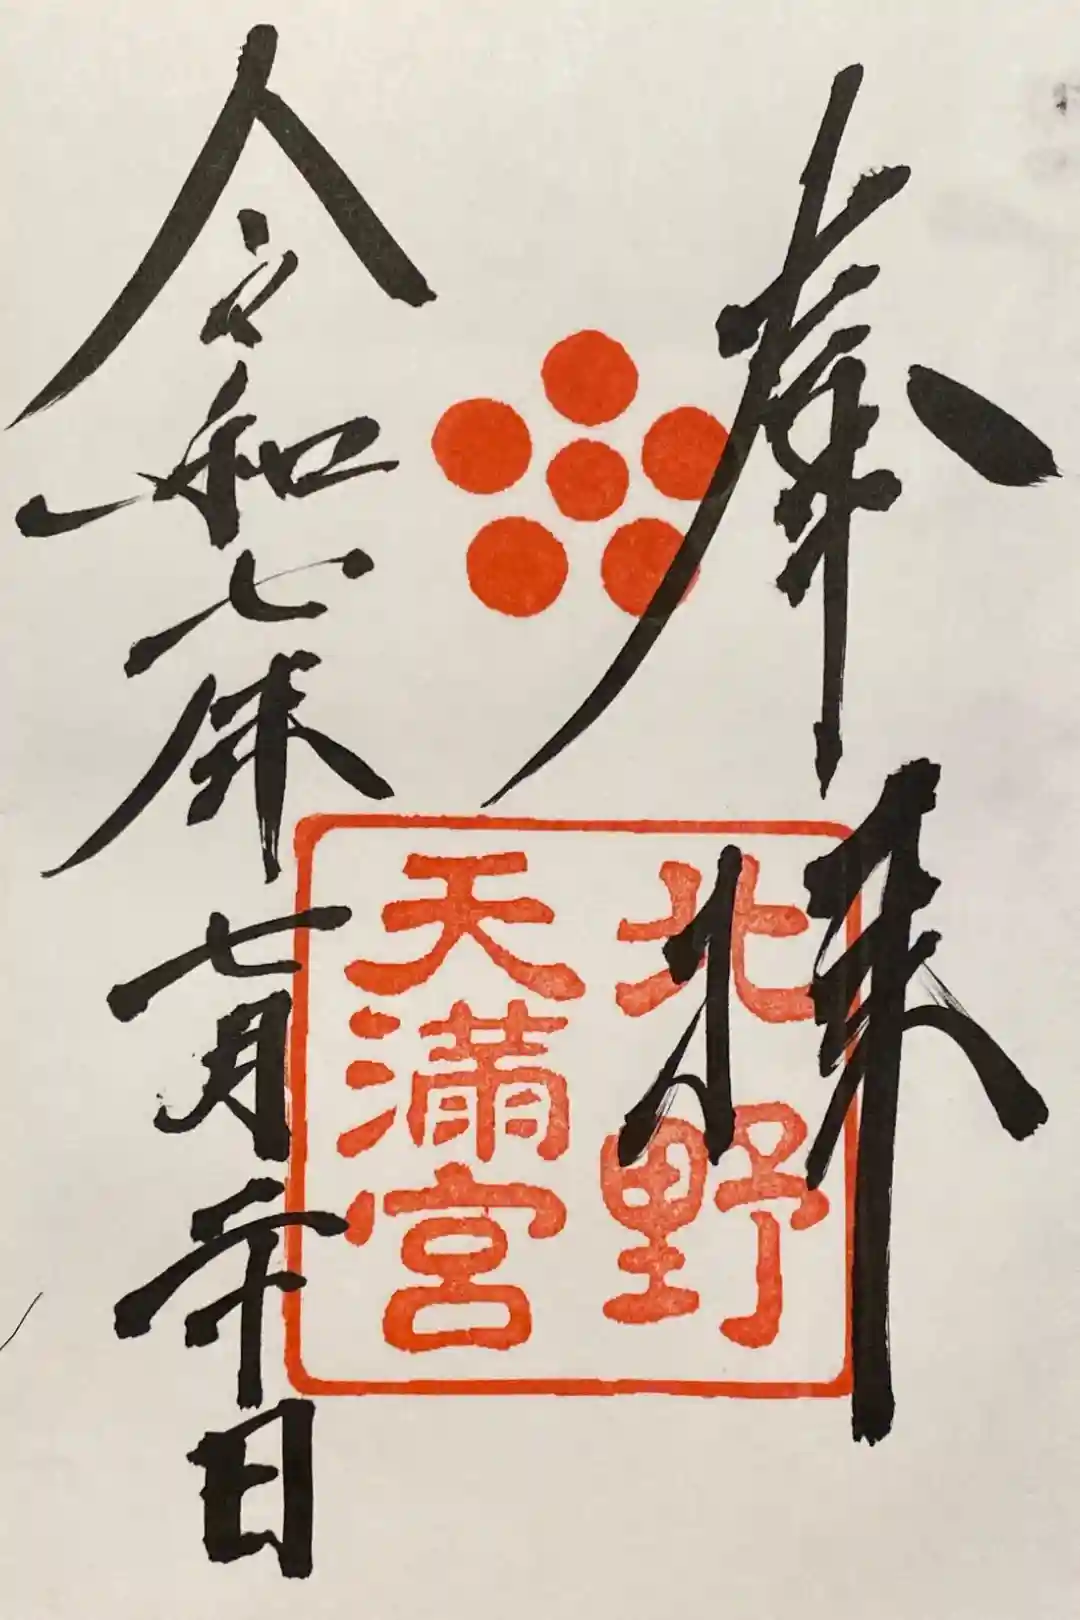 奉拝
北野
天満宮
令和七年七月二十日